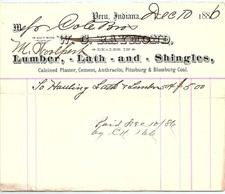 Peru, Indiana, Dec 10 1886
Messrs Cole Bros
W. C. RAYMOND,
DEALER IN
Lumber, Lath and Shingles,
Calcined Plaster, Cement, Anthracite, Pittsburg & Blossburg Coal.
To Hauling Lath & Lumber $5.00
Paid Dec 10/86
by CK 166